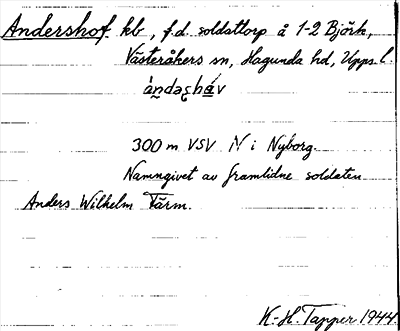 Andershof kb, f.d. soldattorp å 1-2 Björk,
Västeråkers sn, Hagunda hd, Upps. l.
300 m VSV N i Nyborg.
Namngivet av framlidne soldaten
Anders Wilhelm Tärm.
K-H. Tapper 1944.